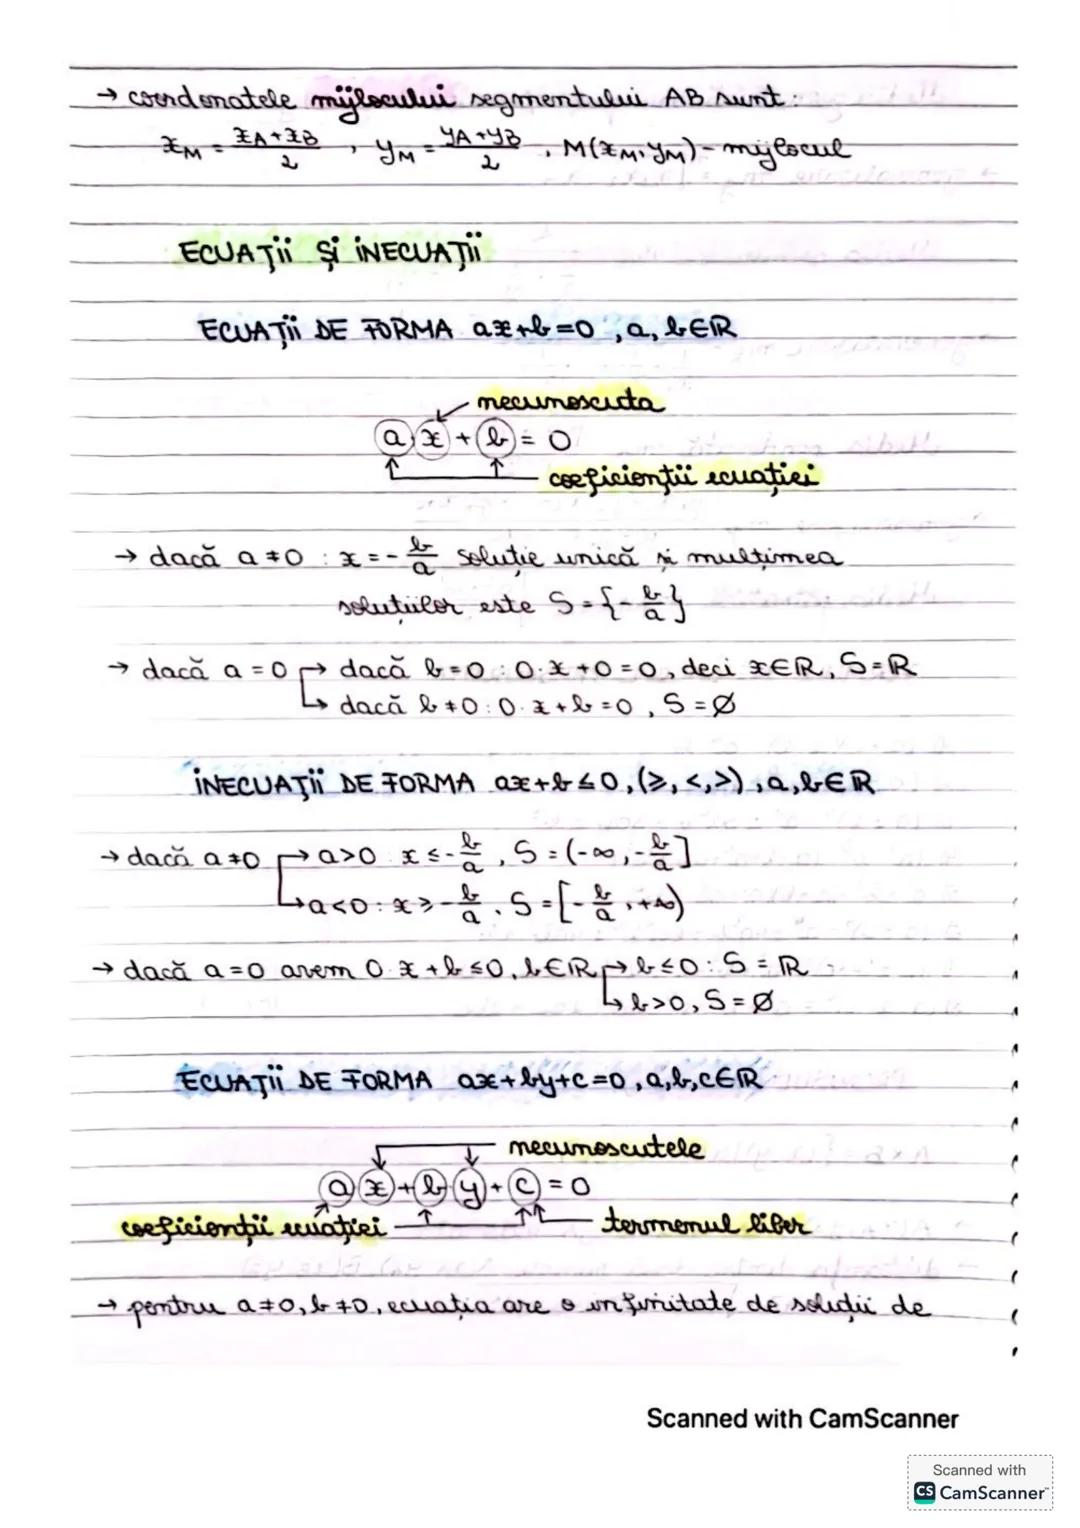 → coordonatele mijlocului segmentului AB sunt:
xM = xA+xB/2 , yM = yA+yB/2 , M(xM, yM) - mijlocul
ECUAȚII ȘI INECUAȚII
ECUAȚII DE FORMA ax+b=0, a, b∈ℝ
necunoscuta
a x + b = 0
coeficienții ecuației
→ dacă a ≠ 0 : x = - b/a soluție unică și mulțimea
soluțiilor este S = {- b/a}
→ dacă a = 0 → dacă b = 0 : 0·x + 0 = 0, deci x∈ℝ, S = ℝ
↳ dacă b ≠ 0 : 0·x + b = 0, S = Ø
INECUAȚII DE FORMA ax+b ≤ 0, (≥, <, >), a, b∈ℝ
→ dacă a ≠ 0 → a>0 x ≤ - b/a , S = (-∞, - b/a]
↳ a<0 : x ≥ - b/a , S = [- b/a , +∞)
→ dacă a = 0 avem 0·x + b ≤ 0, b∈ℝ → b ≤ 0 : S = ℝ
↳ b>0, S = Ø
ECUAȚII DE FORMA ax+by+c=0, a, b, c∈ℝ
necunoscutele
a x + b y + c = 0
coeficienții ecuației termenul liber
→ pentru a ≠ 0, b ≠ 0, ecuația are o infinitate de soluții de
Scanned with CamScanner
Scanned with
CS CamScanner™